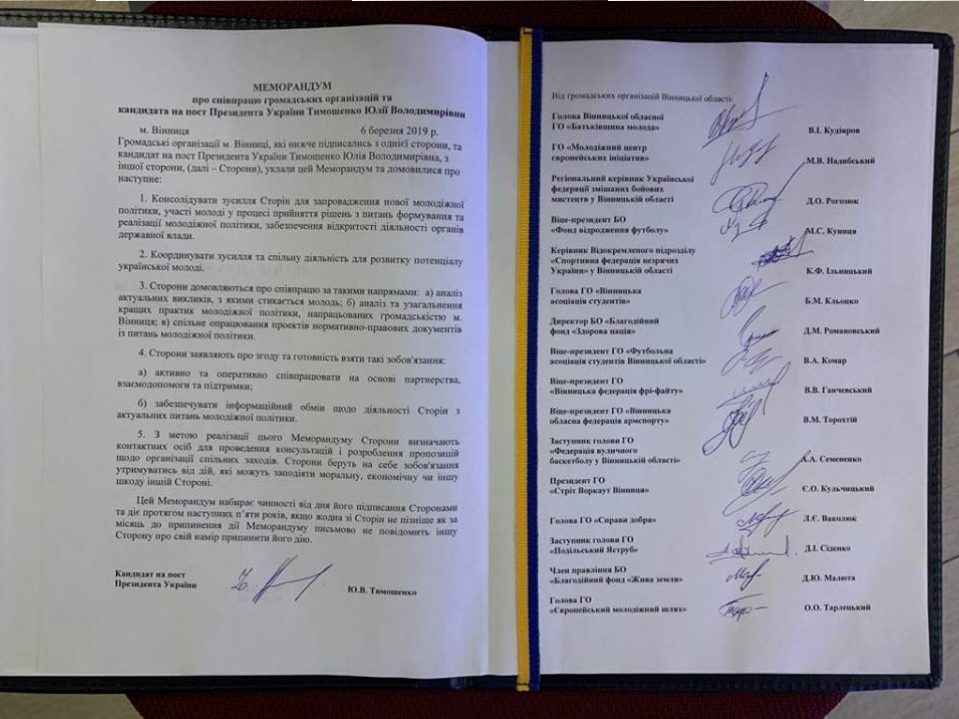 МЕМОРАНДУМ
про співпрацю громадських організацій та
кандидата на пост Президента України Тимошенко Юлії Володимирівни
м. Вінниця 6 березня 2019 р.
Громадські організації м. Вінниці, які нижче підписались з однієї сторони, та
кандидат на пост Президента України Тимошенко Юлія Володимирівна, з
іншої сторони, (далі – Сторони), уклали цей Меморандум та домовилися про
наступне:
1. Консолідувати зусилля Сторін для запровадження нової молодіжної
політики, участі молоді у процесі прийняття рішень з питань формування та
реалізації молодіжної політики, забезпечення відкритості діяльності органів
державної влади.
2. Координувати зусилля та спільну діяльність для розвитку потенціалу
української молоді.
3. Сторони домовляються про співпрацю за такими напрямами: а) аналіз
актуальних викликів, з якими стикається молодь; б) аналіз та узагальнення
кращих практик молодіжної політики, напрацьованих громадськістю м.
Вінниця; в) спільне опрацювання проектів нормативно-правових документів
із питань молодіжної політики.
4. Сторони заявляють про згоду та готовність взяти такі зобов'язання:
а) активно та оперативно співпрацювати на основі партнерства,
взаємодопомоги та підтримки;
б) забезпечувати інформаційний обмін щодо діяльності Сторін з
актуальних питань молодіжної політики.
5. З метою реалізації цього Меморандуму Сторони визначають
контактних осіб для проведення консультацій і розроблення пропозицій
щодо організації спільних заходів. Сторони беруть на себе зобов'язання
утримуватись від дій, які можуть заподіяти моральну, економічну чи іншу
шкоду іншій Стороні.
Цей Меморандум набирає чинності від дня його підписання Сторонами
та діє протягом наступних п'яти років, якщо жодна зі Сторін не пізніше як за
місяць до припинення дії Меморандуму письмово не повідомить іншу
Сторону про свій намір припинити його дію.
Кандидат на пост
Президента України Ю.В. Тимошенко
Від громадських організацій Вінницької області:
Голова Вінницької обласної
ГО «Батьківщина молода» В.І. Кудіяров
ГО «Молодіжний центр
європейських ініціатив» М.В. Надибський
Регіональний керівник Української
федерації змішаних бойових
мистецтв у Вінницькій області Д.О. Рогозюк
Віце-президент БО
«Фонд відродження футболу» М.С. Куниця
Керівник Відокремленого підрозділу
«Спортивна федерація незрячих
України» у Вінницькій області К.Ф. Ільницький
Голова ГО «Вінницька
асоціація студентів» Б.М. Кльоцко
Директор БО «Благодійний
фонд «Здорова нація» Д.М. Романовський
Віце-президент ГО «Футбольна
асоціація студентів Вінницької області» В.А. Комар
Віце-президент ГО
«Вінницька федерація фрі-файту» В.В. Ганчевський
Віце-президент ГО «Вінницька
обласна федерація армспорту» В.М. Торохтій
Заступник голови ГО
«Федерація вуличного
баскетболу у Вінницькій області» А.А. Семененко
Президент ГО
«Стріт Воркаут Вінниця» Є.О. Кульчицький
Голова ГО «Справи добра» Л.Є. Ваколюк
Заступник голови ГО
«Подільський Яструб» Д.І. Сіденко
Член правління БО
«Благодійний фонд «Жива земля» Д.Ю. Малюта
Голова ГО
«Європейський молодіжний шлях» О.О. Тарлецький